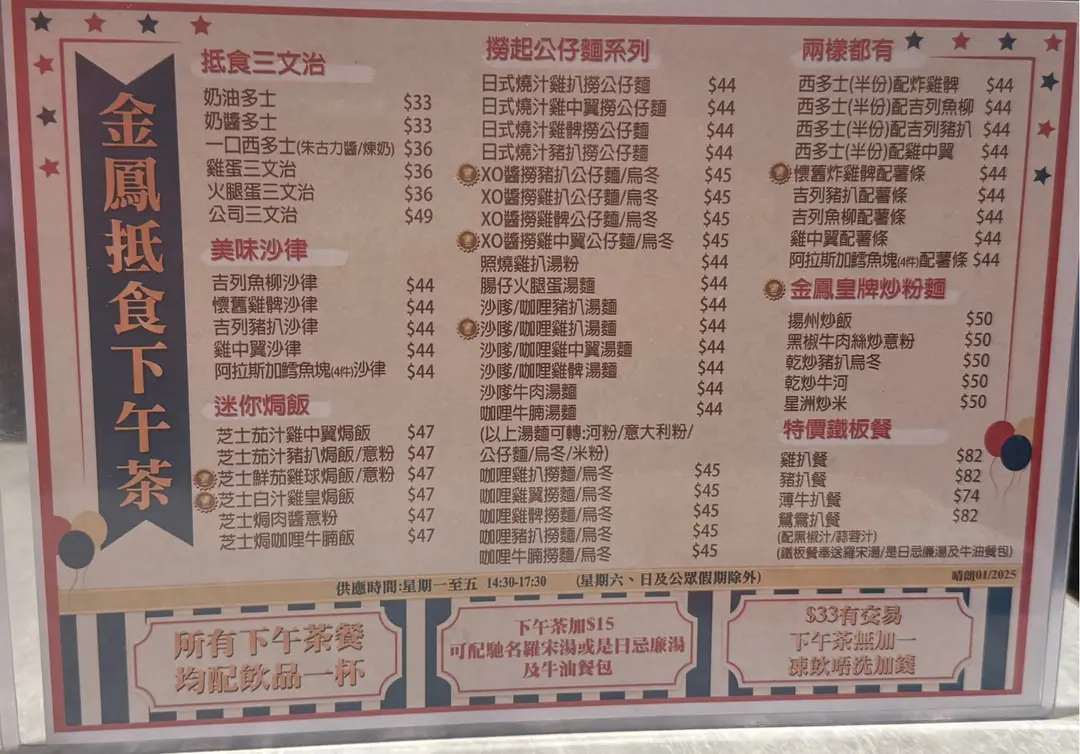 金鳳抵食下午茶
抵食三文治
奶油多士 $33
奶醬多士 $33
一口西多士(朱古力醬/煉奶) $36
雞蛋三文治 $36
火腿蛋三文治 $36
公司三文治 $49
美味沙律
吉列魚柳沙律 $44
懷舊雞髀沙律 $44
吉列豬扒沙律 $44
雞中翼沙律 $44
阿拉斯加鱈魚塊(4件)沙律 $44
迷你焗飯
芝士茄汁雞中翼焗飯 $47
芝士茄汁豬扒焗飯/意粉 $47
芝士鮮茄雞球焗飯/意粉 $47
芝士白汁雞皇焗飯 $47
芝士焗肉醬意粉 $47
芝士焗咖哩牛腩飯 $47
撈起公仔麵系列
日式燒汁雞扒撈公仔麵 $44
日式燒汁雞中翼撈公仔麵 $44
日式燒汁雞髀撈公仔麵 $44
日式燒汁豬扒撈公仔麵 $44
XO醬撈豬扒公仔麵/烏冬 $45
XO醬撈雞扒公仔麵/烏冬 $45
XO醬撈雞髀公仔麵/烏冬 $45
XO醬撈雞中翼公仔麵/烏冬 $45
照燒雞扒湯粉 $44
腸仔火腿蛋湯麵 $44
沙嗲/咖哩豬扒湯麵 $44
沙嗲/咖哩雞扒湯麵 $44
沙嗲/咖哩雞中翼湯麵 $44
沙嗲/咖哩雞髀湯麵 $44
沙嗲牛肉湯麵 $44
咖哩牛腩湯麵 $44
(以上湯麵可轉:河粉/意大利粉/
公仔麵/烏冬/米粉)
咖哩雞扒撈麵/烏冬 $45
咖哩雞翼撈麵/烏冬 $45
咖哩雞髀撈麵/烏冬 $45
咖哩豬扒撈麵/烏冬 $45
咖哩牛腩撈麵/烏冬 $45
兩樣都有
西多士(半份)配炸雞髀 $44
西多士(半份)配吉列魚柳 $44
西多士(半份)配吉列豬扒 $44
西多士(半份)配雞中翼 $44
懷舊炸雞髀配薯條 $44
吉列豬扒配薯條 $44
吉列魚柳配薯條 $44
雞中翼配薯條 $44
阿拉斯加鱈魚塊(4件)配薯條 $44
金鳳皇牌炒粉麵
揚州炒飯 $50
黑椒牛肉絲炒意粉 $50
乾炒豬扒烏冬 $50
乾炒牛河 $50
星洲炒米 $50
特價鐵板餐
雞扒餐 $82
豬扒餐 $82
薄牛扒餐 $74
鴛鴦扒餐 $82
(配黑椒汁/蒜蓉汁)
(鐵板餐奉送羅宋湯/是日忌廉湯及牛油餐包)
供應時間:星期一至五 14:30-17:30 (星期六、日及公眾假期除外)
晴朗01/2025
所有下午茶餐
均配飲品一杯
下午茶加$15
可配馳名羅宋湯或是日忌廉湯
及牛油餐包
$33有交易
下午茶無加一
凍飲唔洗加錢